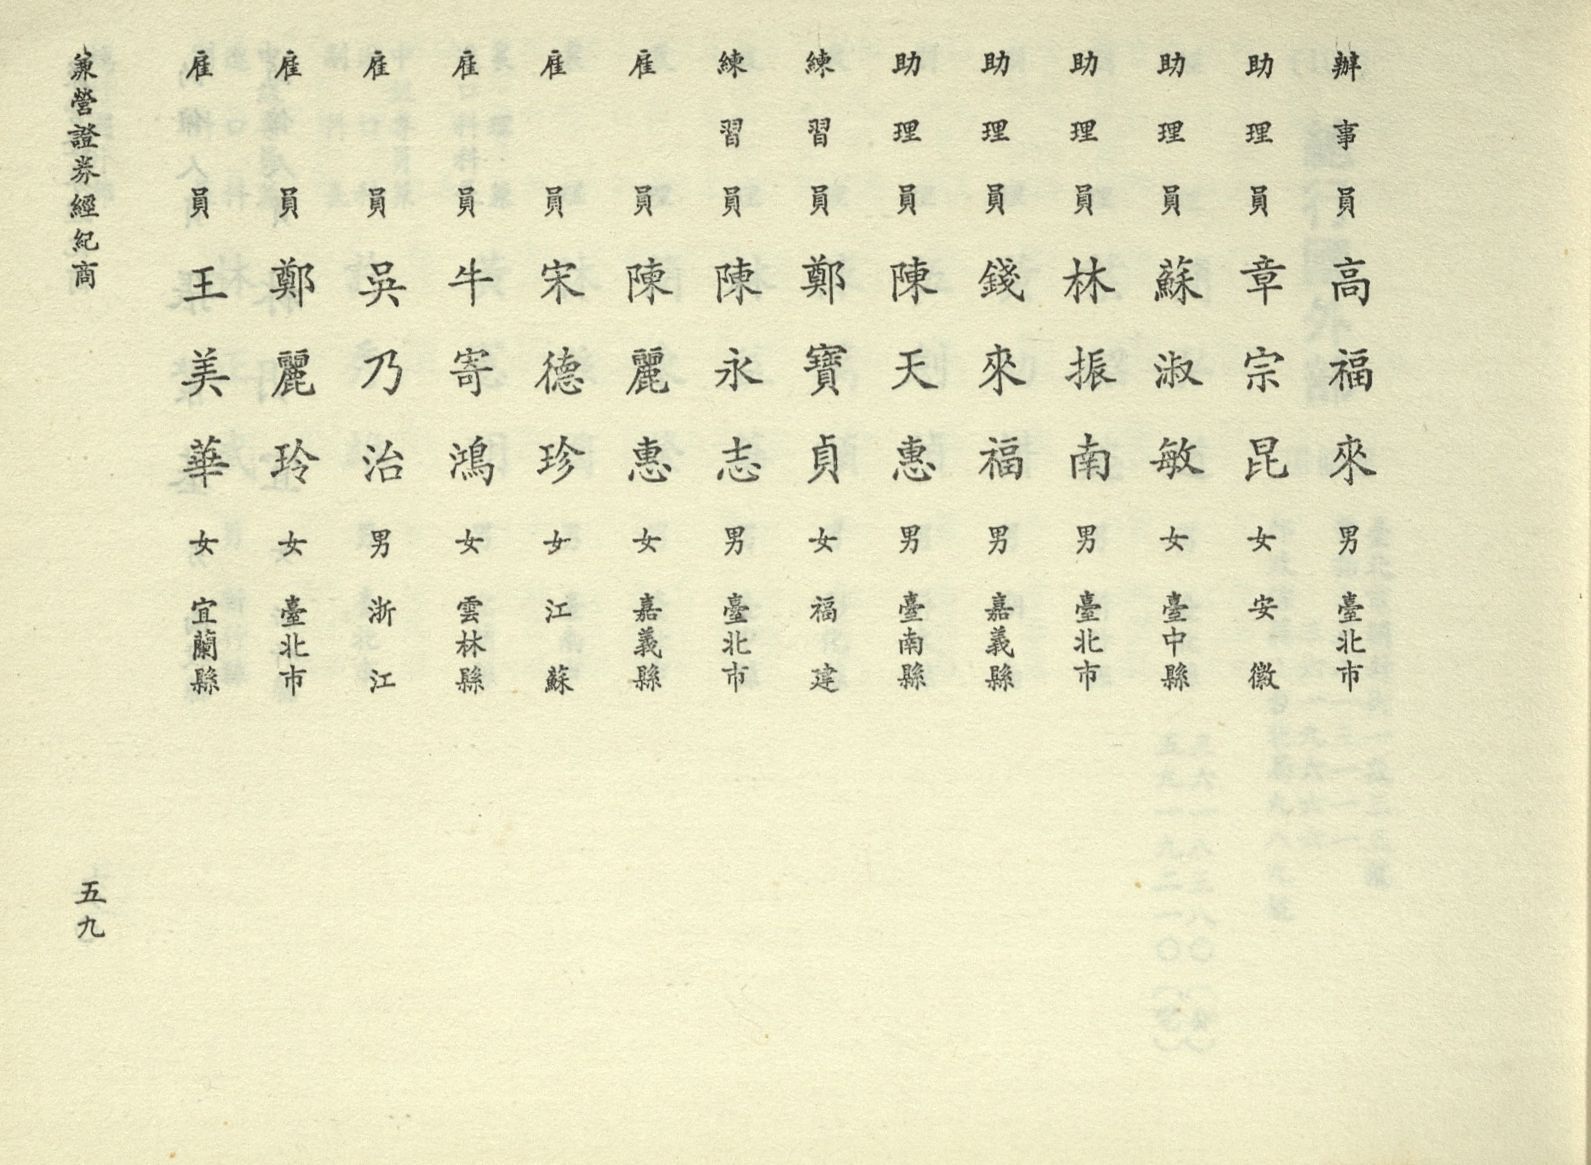 辦事員 高福來 男 臺北市
助理員 章宗昆 女 安徽
助理員 蘇淑敏 女 臺中縣
助理員 林振南 男 臺北市
助理員 錢來福 男 嘉義縣
助理員 陳天惠 男 臺南縣
練習員 鄭寶貞 女 福建
練習員 陳永志 男 臺北市
雇員 陳麗惠 女 嘉義縣
雇員 宋德珍 女 江蘇
雇員 牛寄鴻 女 雲林縣
雇員 吳乃治 男 浙江
雇員 鄭麗玲 女 臺北市
雇員 王美華 女 宜蘭縣
兼營證券經紀商
五九